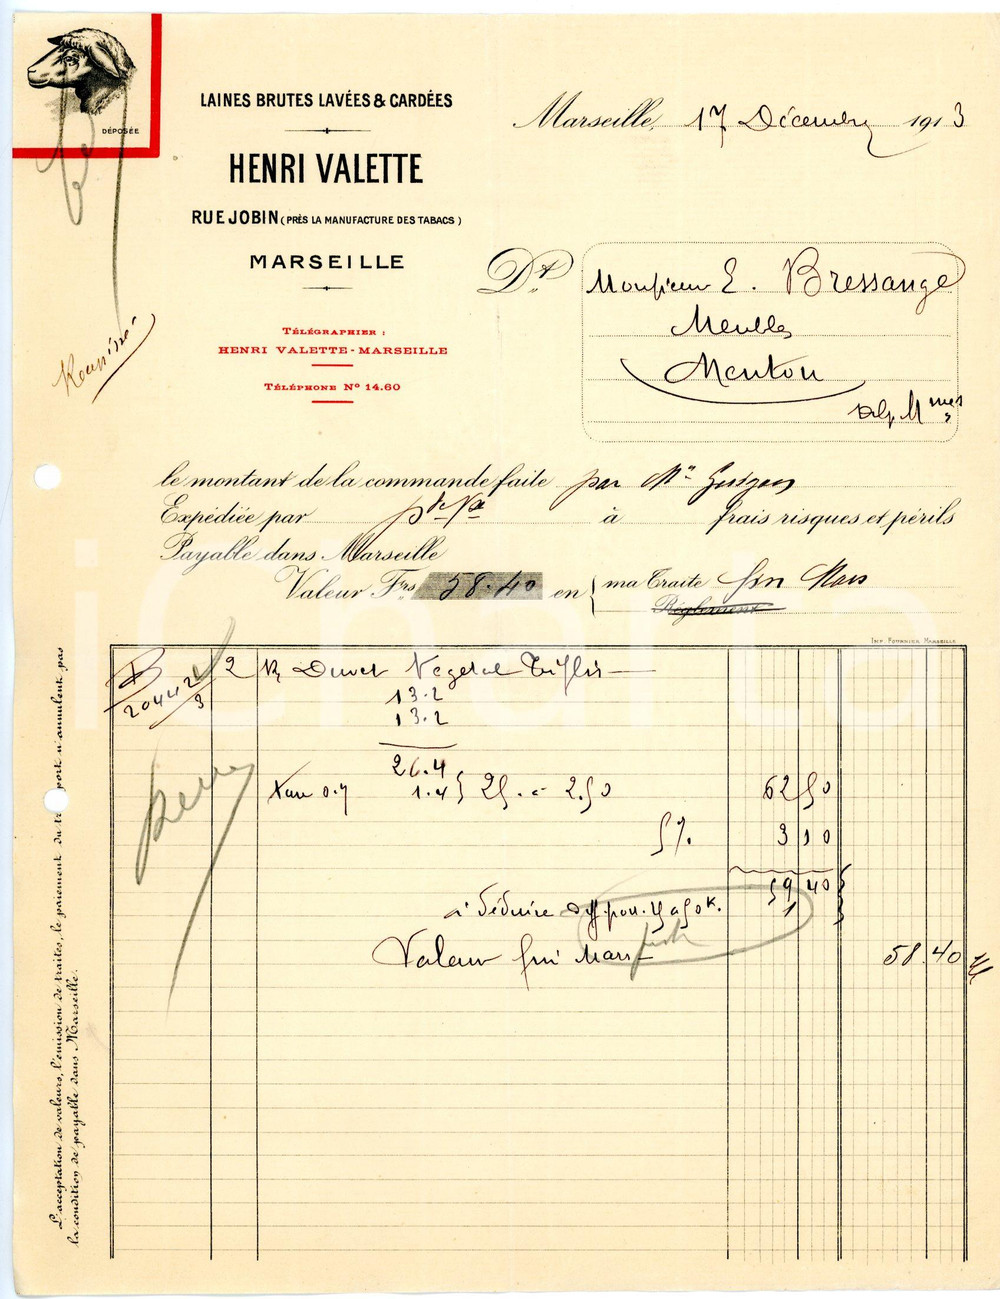 DÉPOSÉE
LAINES BRUTES LAVÉES & CARDÉES
HENRI VALETTE
RUE JOBIN (PRÈS LA MANUFACTURE DES TABACS)
MARSEILLE
TÉLÉGRAPHIER :
HENRI VALETTE-MARSEILLE
TÉLÉPHONE Nº 14.60
Marseille, 17 Décembre 1913
Dt
Monsieur E. Bressange
Meubles
Menton
Alp. Mmes
le montant de la commande faite par Mr
Expédiée par pde Vse à frais risques et périls
Payable dans Marseille
Valeur Frs 58.40 en ma Traite fin Mars
Règlement
IMP. FOURNIER MARSEILLE
B 2 B/ Duvet Vegetal
20442/3
13.2
13.2
26.4
Tare 0.7 1.4 25. à 2.50 62 50
5 % 3 10
59 40
à déduire diff. pou. 1
Valeur fin Mars 58.40
L'acceptation de valeurs, l'émission de traites, le paiement du port n'annulent pas
la condition de payable dans Marseille.
iCharta